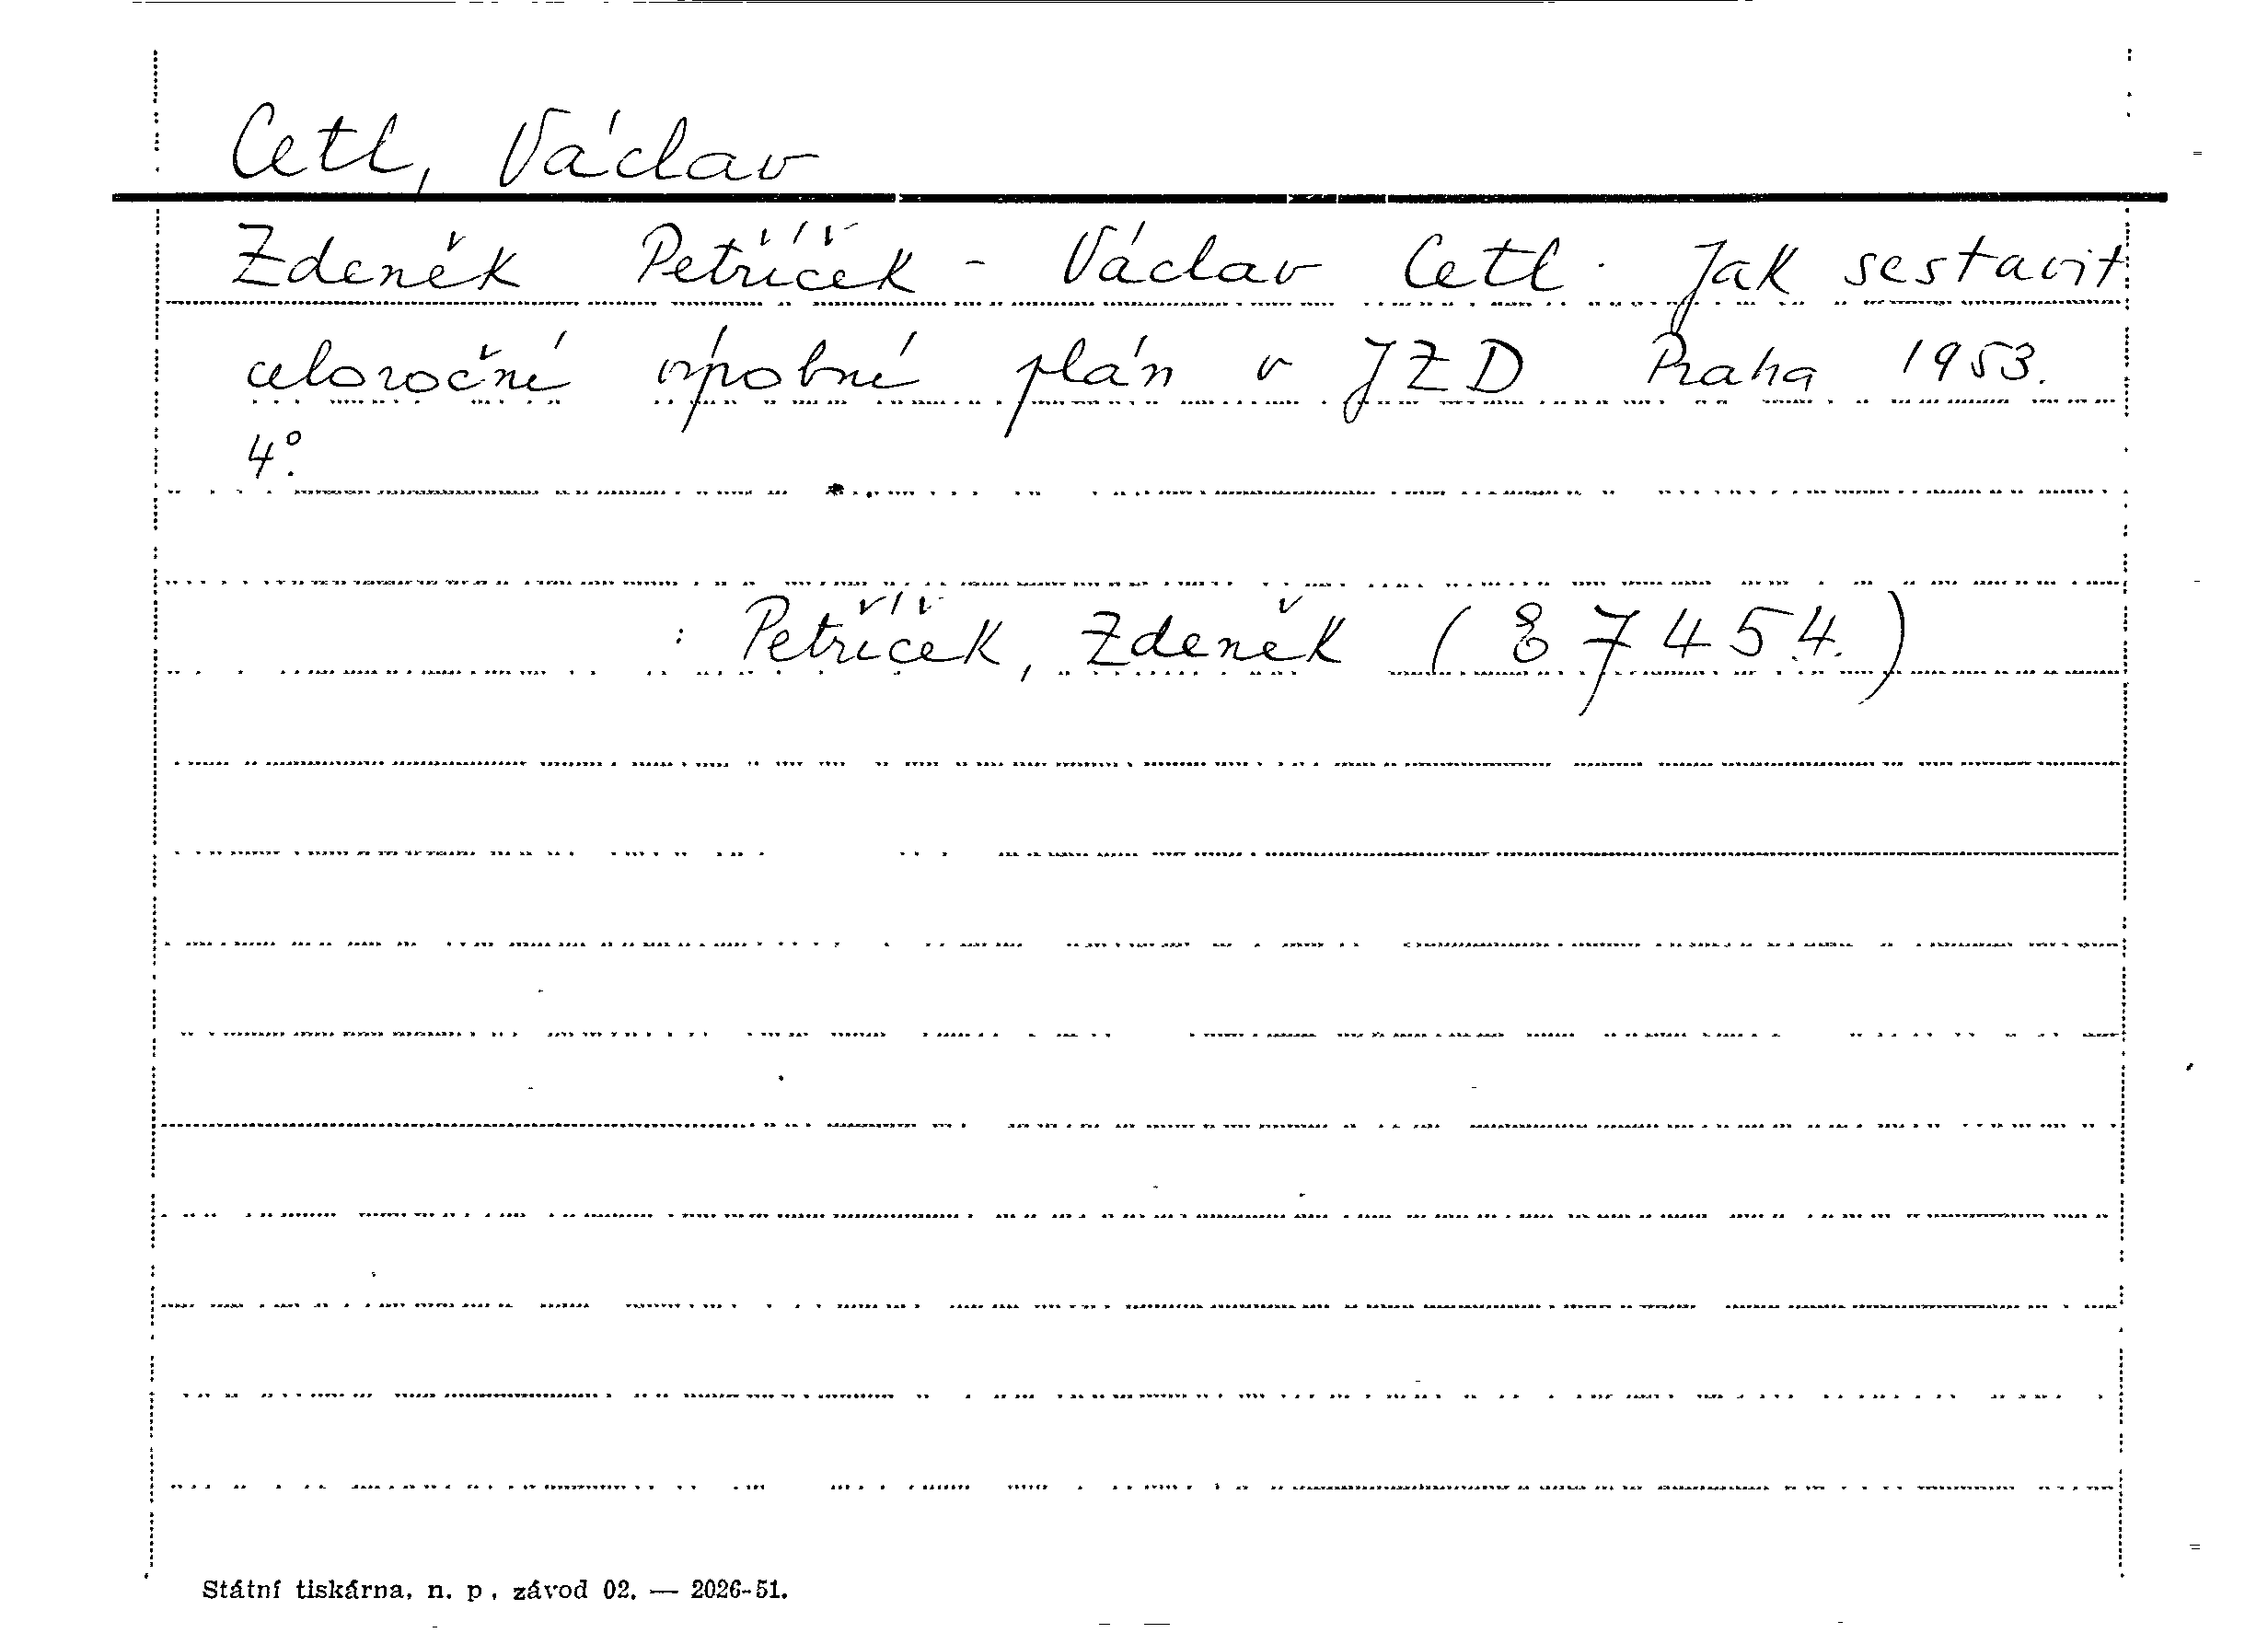 Cetl, Václav
Zdeněk Petříček - Václav Cetl. Jak sestavit
celoroční výrobní plán v JZD Praha 1953.
4°.
: Petříček, Zdeněk (87454.)
Státní tiskárna, n. p., závod 02. — 2026-51.